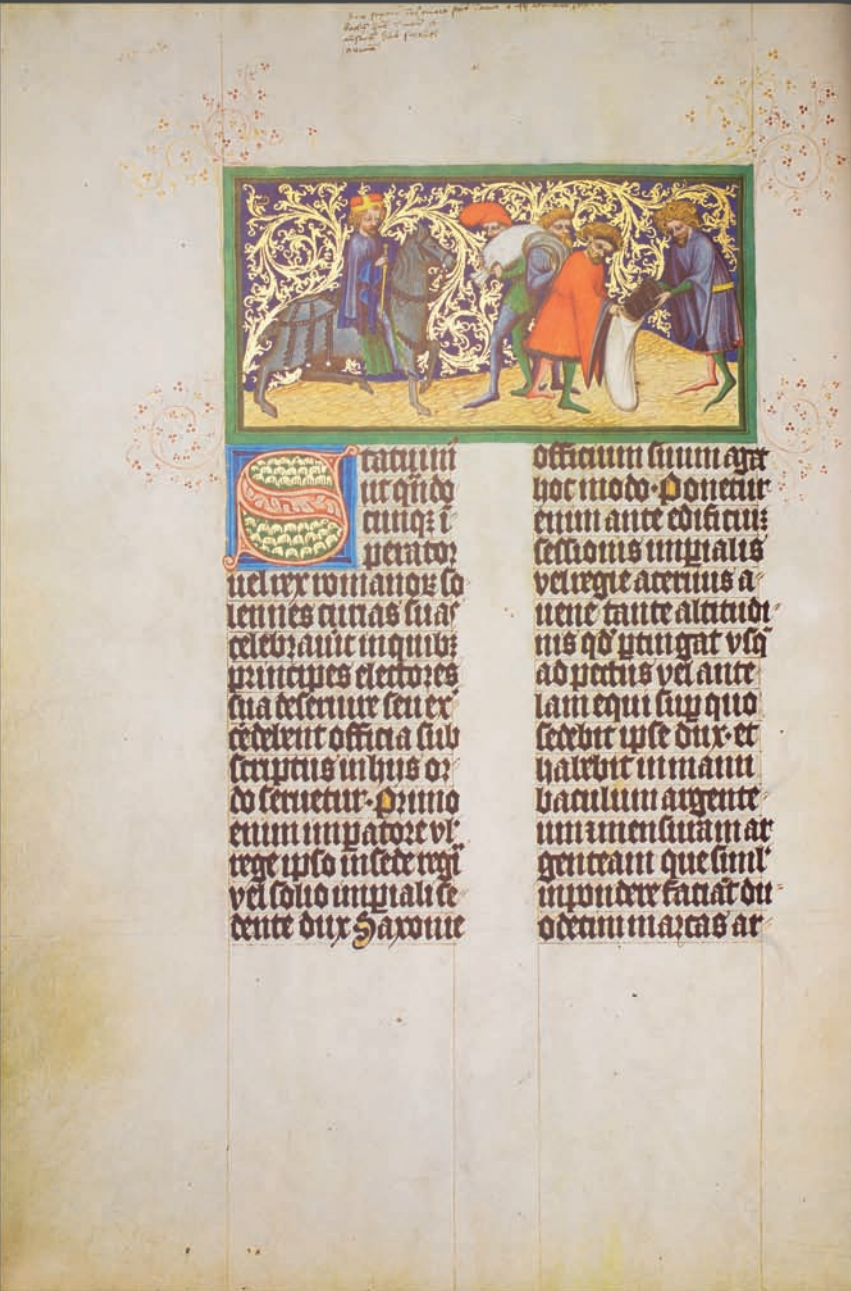 Statuim
ut qn̄do
cunqꝫ ī
perator
uel rex romanoꝝ so
lennes curias suas
celebrauit in quibꝫ
principes electores
sua deseruire seu ex
cedelent officia sub
scriptus in hijs or
do seruetur. Primo
enim imꝑatore vl'
rege ipso in sede regi
vel solio imꝑiali se
dente dux Saxonie
officium suum aget
hoc modo. Ponetur
enim ante edificiuꝫ
sessionis imꝑialis
vel regie aceruus a
uene tante altitudi
nis qd̛ ꝑtingat vsqꝫ
ad pectus vel ante
lam equi suꝑ quo
sedebit ipse dux. et
habebit in manu
baculum argente
um ⁊ mensuram ar
genteam que siml'
in pondere faciāt du
odecim marcas ar